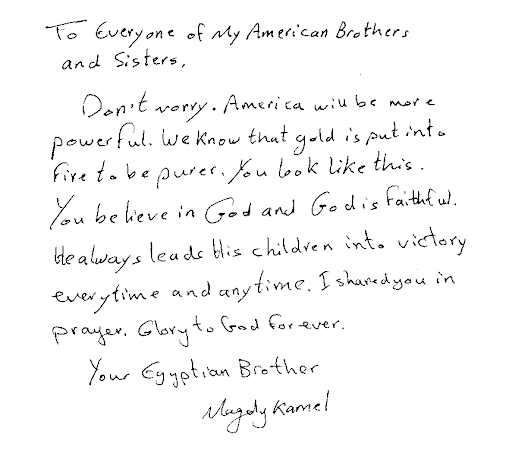 To Everyone of My American Brothers
and Sisters,
Don't worry. America will be more
powerful. We know that gold is put into
fire to be purer. You look like this.
You believe in God and God is faithful.
He always leads His children into victory
everytime and anytime. I shared you in
prayer. Glory to God for ever.
Your Egyptian Brother
Magdy Kamel